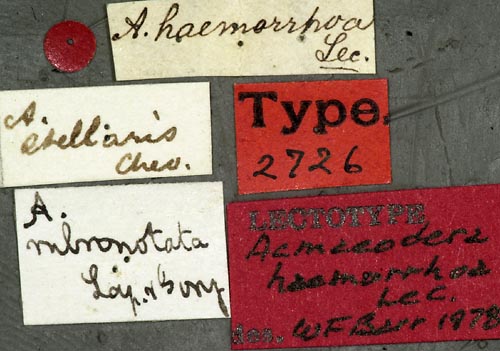 A. haemorrhoa
Lec.
A.
stellaris
Chev.
Type.
2726
A.
rubronotata
Lap.
LECTOTYPE
Acmaeodera
haemorrhoa
Lec.
des. WFBarr 1972